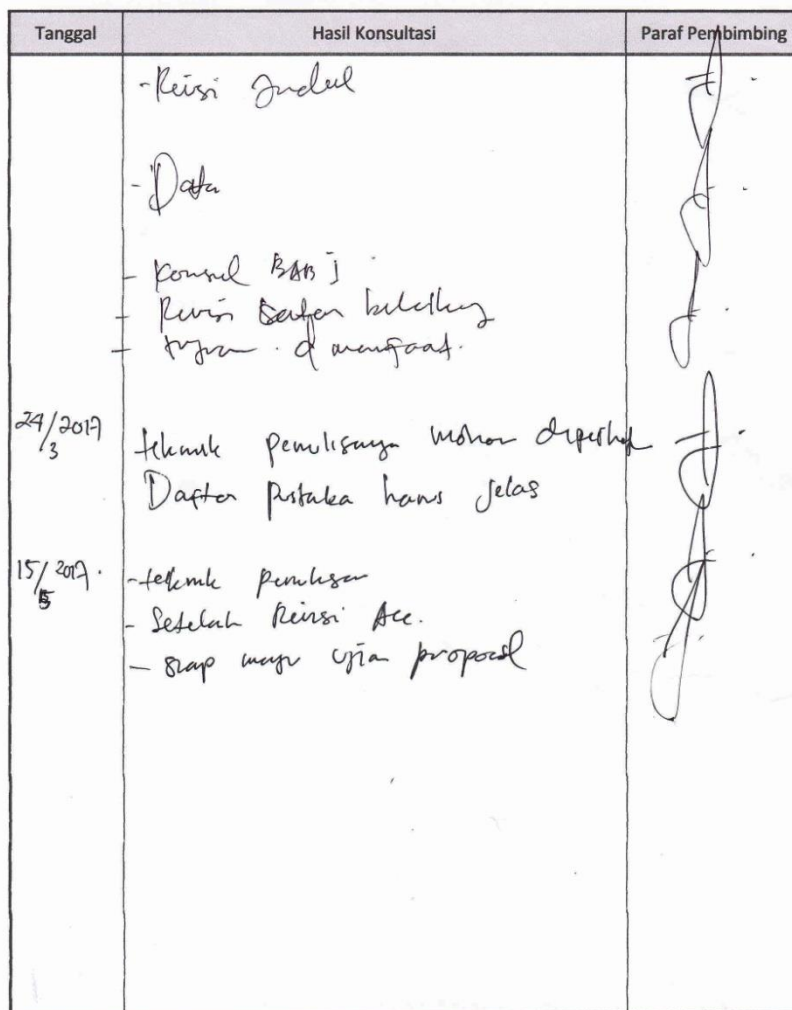 Tanggal Hasil Konsultasi Paraf Pembimbing
- Revisi Judul
- Data
- Konsul BAB I
- Revisi latar belakang
- tujuan d manfaat.
24/3 2017 teknik penulisanya mohon diperhat
Daftar pustaka harus jelas
15/5 2017. - teknik penulisan
- Setelah Revisi Acc.
- siap maju ujian proposal